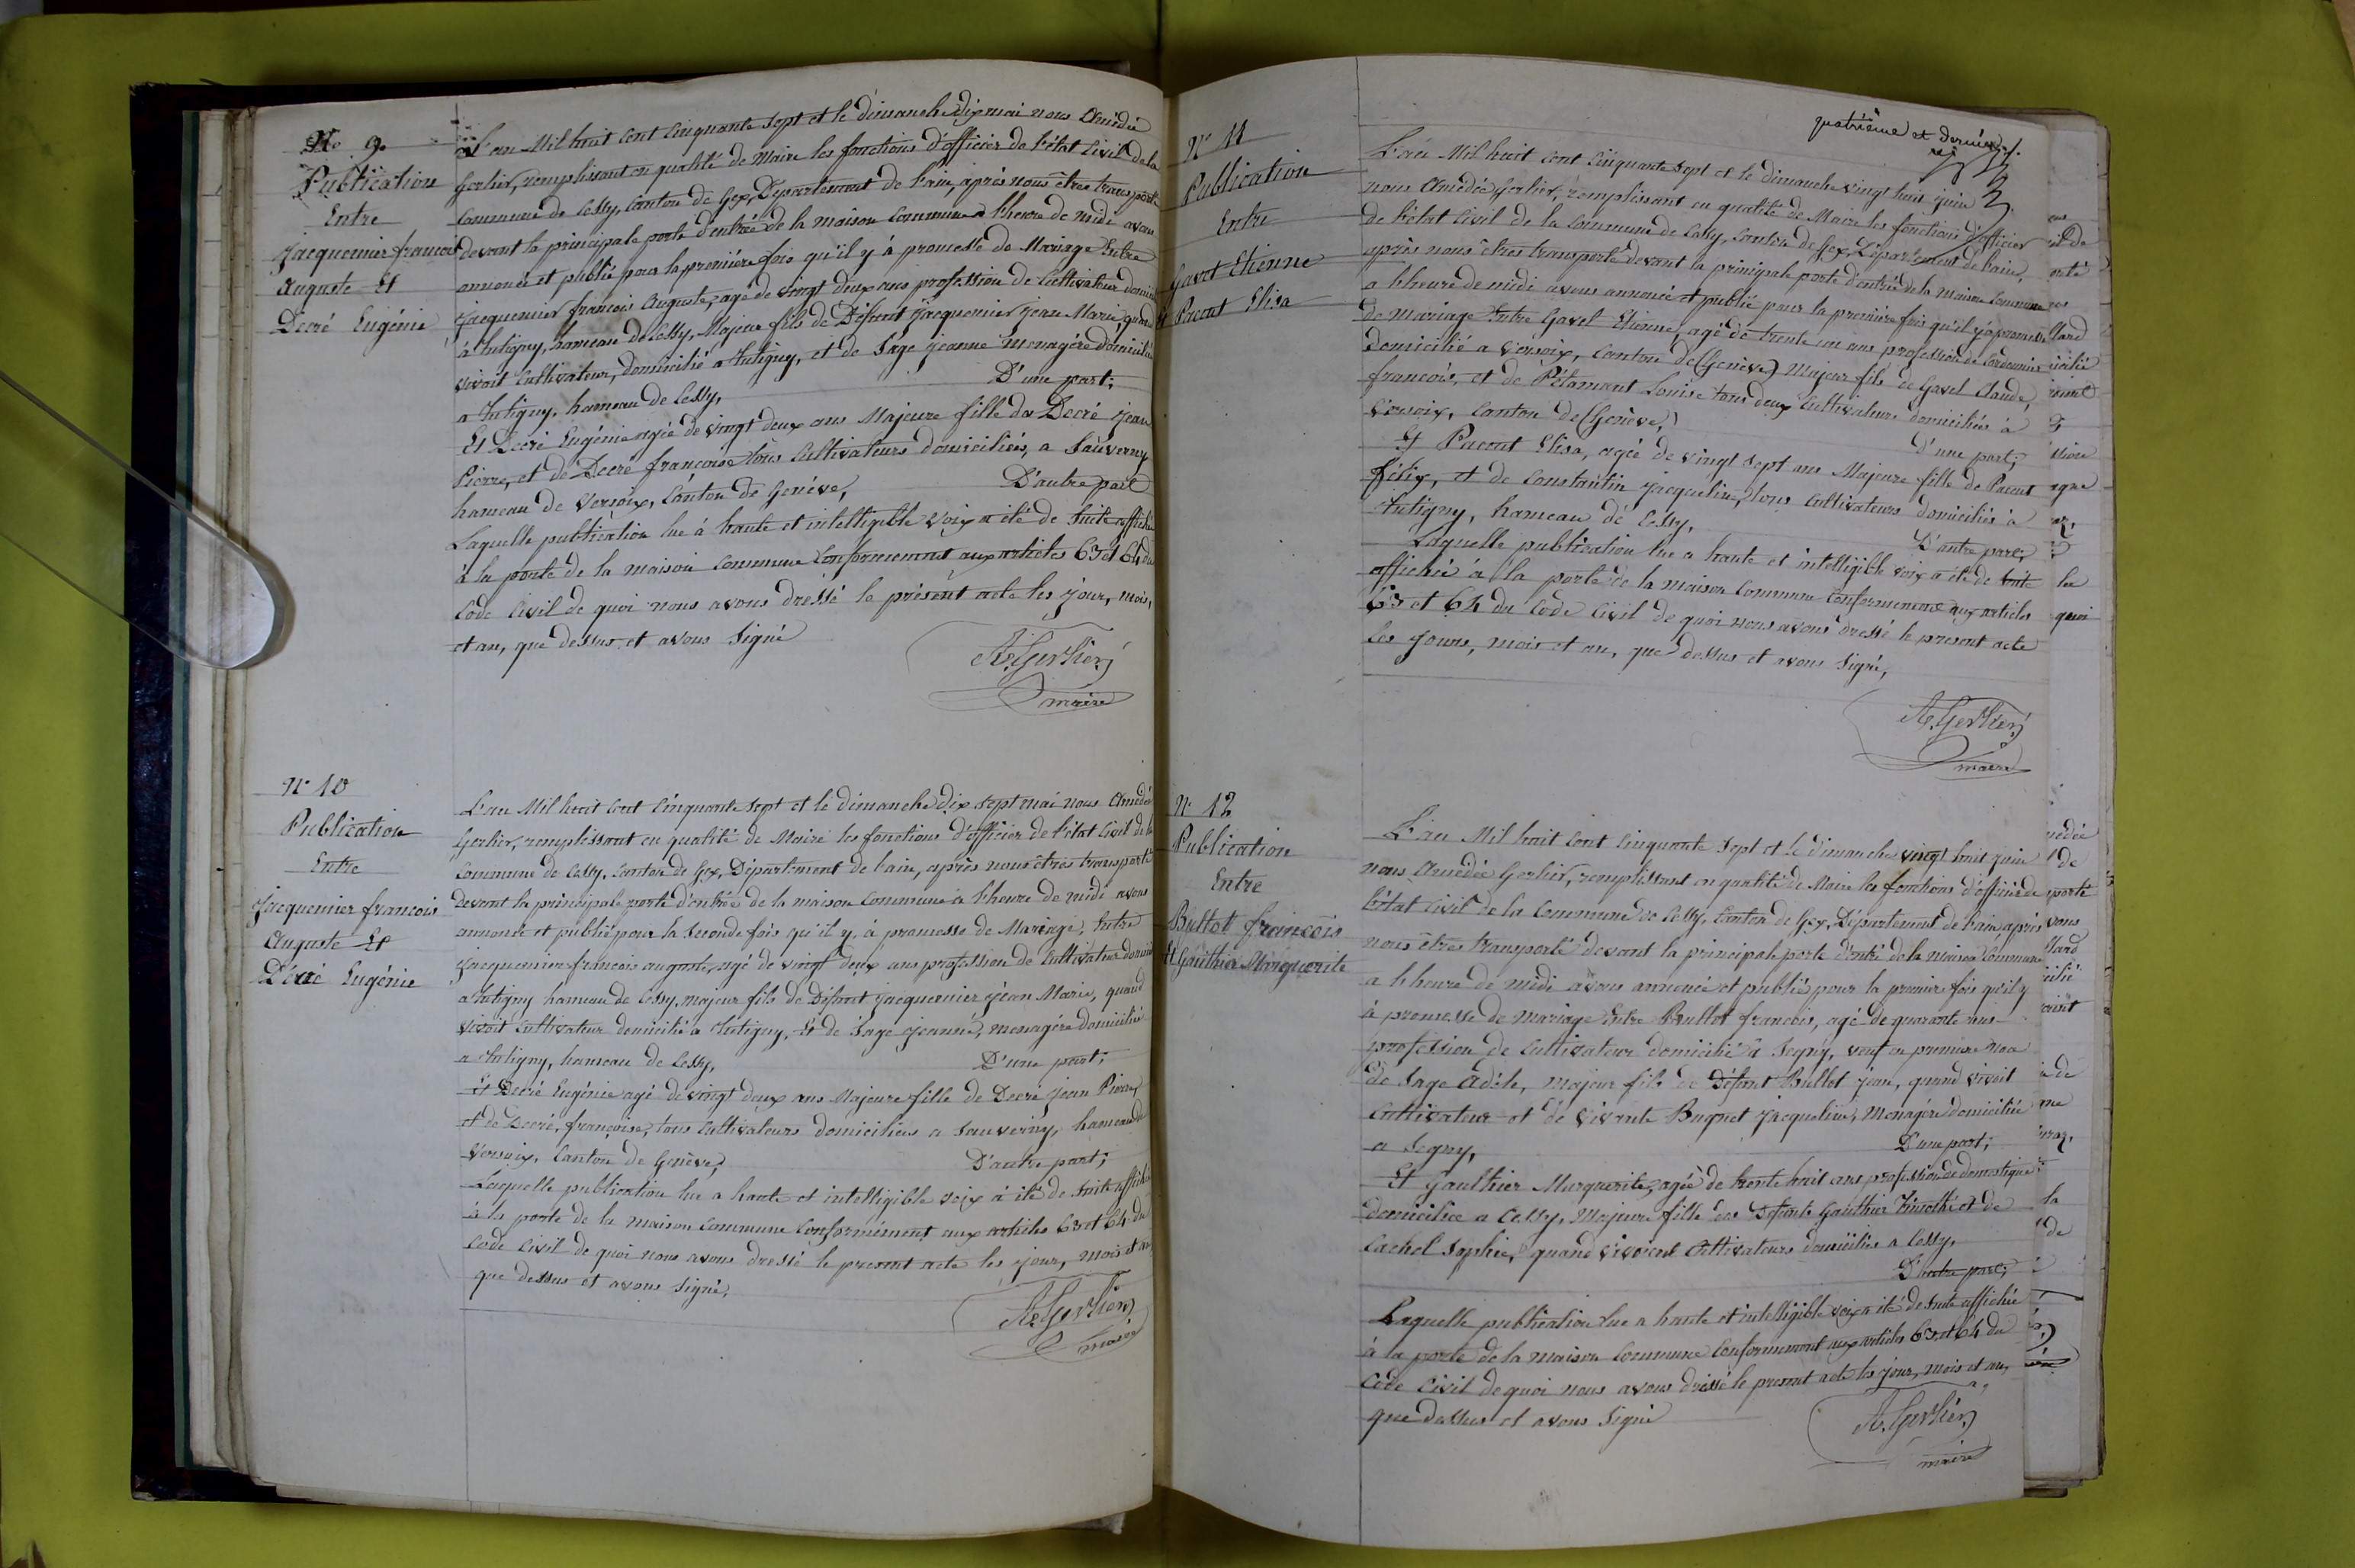 No 9.
Publication
Entre
Jacquemier francois
Auguste Et
Decré Eugénie
L'an Mil huit cent cinquante sept et le dimanche dix mai nous Amédée
Gerlier, remplissant en qualité de Maire les fonctions d'officier de l'état Civil de la
Commune de Cessy, Canton de Gex, Département de l'ain, après nous êtres transporté
devant la principale porte d'entrée de la maison Commune a l'heure de midi avons
annoncé et publié pour la première fois qu'il y à promesse de Mariage Entre
Jacquemier francois Auguste, agé de vingt deux ans profession de Cultivateur domicilié
à Tutigny, hameau de Cessy, Majeur fils de Défunt Jacquemier Jean Marie, quand
vivait Cultivateur, domicilié a Tutigny, et de Sage Jeanne menagère domiciliée
a Tutigny, hameau de Cessy, D'une part;
Et Decré Eugénie agée de vingt deux ans Majeure fille de Decré Jean
Pierre, et de Decré francoise tous Cultivateurs domiciliés, a Sauverny
hameau de Versoix, Canton de Genève, D'autre part
Laquelle publication lue à haute et intelligible voix a été de suite affichée
à la porte de la maison Commune Conformement aux articles 63 et 64 du
Code Civil de quoi nous avons dressé le présent acte les jour, mois,
et an, que dessus et avons signé
A. Gerlier
maire
No 10
Publication
Entre
Jacquemier francois
Auguste Et
Décré Eugénie
L'an Mil huit cent Cinquante sept et le dimanche dix sept mai nous Amédée
Gerlier, remplissant en qualité de Maire les fonctions d'officier de l'état Civil de la
Commune de Cessy, Canton de Gex, Département de l'ain, après nous êtres transporté
Devant la principale porte d'entrée de la maison Commune à l'heure de midi avons
annoncé et publié pour la Seconde fois qu'il y, à promesse de Mariage, Entre
Jacquemier francois auguste, agé de vingt deux ans profession de Cultivateur domicilié
a Tutigny hameau de Cessy, majeur fils de Défunt Jacquemier Jean Marie, quand
vivait Cultivateur domicilié a Tutigny, Et de Sage Jeanne, menagère domiciliée
a Tutigny, hameau de Cessy, D'une part;
Et Decré Eugénie agé de vingt deux ans Majeure fille de Decré Jean Pierre,
et de Decré, françoise, tous Cultivateurs domiciliés a Sauverny, hameau de
Versoix, Canton de Genève, D'autre part;
Laquelle publication lue a haute et intelligible voix à été de suite affichée
à la porte de la maison Commune Conformément aux articles 63 et 64 du
Code Civil de quoi nous avons dressé le present acte les jour, mois et an
que dessus et avons signé.
A. Gerlier
maire
quatrième et dernier f.
No 11
Publication
Entre
Gavet Etienne
Et Pacout Elisa
L'an Mil huit cent Cinquante sept et le dimanche vingt huit juin
nous Amédée Gerlier, remplissant en qualité de Maire les fonctions d'officier
de l'état Civil de la Commune de Cessy, Canton de Gex, Département de l'ain,
après nous êtres transporté devant la principale porte d'entrée de la maison Commune
a l'heure de midi avons annoncé et publié pour la première fois qu'il y a promesse
de mariage Entre Gavet Etienne, agé de trente un ans profession de Cordonnier
domicilié a Versoix, Canton de (Genève) Majeur fils de Gavet Claude,
francois, et de Pélamant Louise tous deux Cultivateurs domiciliés à
Versoix, Canton de (Genève,)
D'une part;
Et Pacout Elisa, agée de vingt sept ans Majeure fille de Pacout
félix, et de Constantin Jacqueline, tous Cultivateurs domiciliés à
Tutigny, hameau de Cessy,
D'autre part;
Laquelle publication lue a haute et intelligible voix a été de suite
affichée à la porte de la maison Commune Conformement aux articles
63 et 64 du Code Civil de quoi nous avons dressé le present acte
les jours, mois et an, que dessus et avons signé,
A. Gerlier
maire
No 12
Publication
Entre
Bullot francois
Et Gauthier Marguerite
L'an Mil huit cent Cinquante sept et le dimanche vingt huit juin
nous Amédée Gerlier, remplissant en qualité de Maire les fonctions d'officier de
l'état Civil de la Commune de Cessy, Canton de Gex, Département de l'ain, après
nous êtres transporté devant la principale porte d'entré de la maison Commune
a l'heure de midi avons annoncé et publié pour la premier fois qu'il y
à promesse de mariage Entre Bullot francois, agé de quarante ans
profession de Cultivateur domicilié à Segny, veuf en premiere noce
de Sage Adèle, majeur fils de Défunt Bullot jean, quand vivait
Cultivateur et de vivante Bugnet Jacqueline, Menagère domiciliée
a Segny, D'une part;
Et Gauthier Marguerite, agée de trente huit ans profession de domestique
domiciliée a Cessy, Majeure fille des Défunts Gauthier Timothé et de
Cachet Sophie, quand vivaient Cultivateurs domiciliés a Cessy,
D'autre part;
Laquelle publication lue a haute et intelligible voix a été de suite affichée
à la porte de la maison Commune Conformement aux articles 63 et 64 du
Code Civil de quoi nous avons dressé le present acte les jour, mois et an,
que dessus et avons signé
A. Gerlier
maire